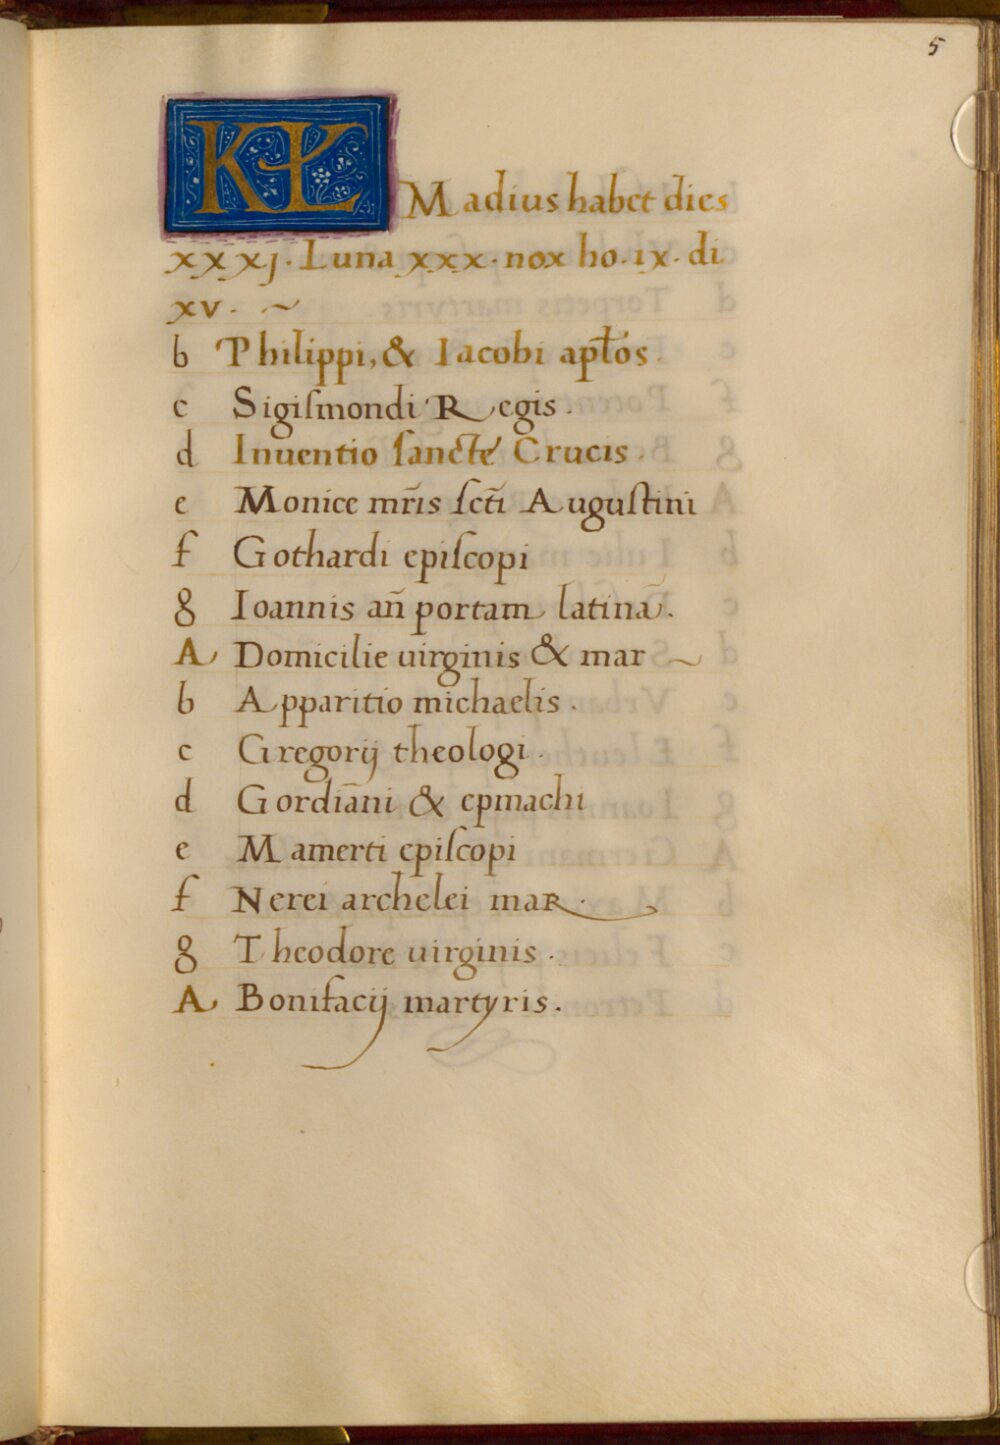 5
KL Madius habet dies
xxxj. Luna xxx. nox ho. ix. di
xv. ~
b Philippi, & Iacobi apłos.
c Sigiſmondi Regis.
d Inuentio ſancte Crucis.
e Monice mr̄is ſct̄i Auguſtini
f Gothardi epiſcopi
g Ioannis an̄ portam latinā.
A Domicilie uirginis & mar ~
b Apparitio michaelis.
c Gregorij theologi.
d Gordiāni & epmachi
e Mamerti epiſcopi
f Nerei archelei mar.
g Theodore uirginis.
A Bonifacij martyris.